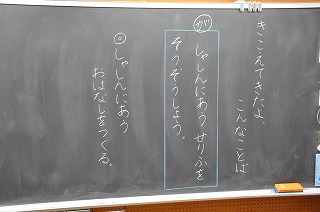 きこえてきたよ、
こんなことば
が
しゃしんにあうせりふを
そうぞうしよう。
◎しゃしんにあう
おはなしをつくる。